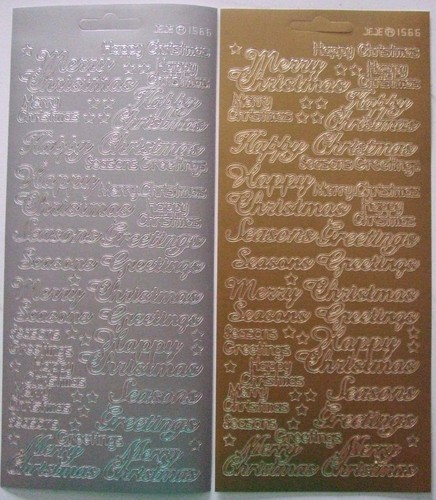 JEJE ® 1566
Happy Christmas
Merry Christmas
Happy Christmas
Merry Christmas
Happy Christmas
Happy Christmas
Seasons Greetings
Happy Christmas
Merry Christmas
Happy Christmas
Seasons Greetings
Seasons Greetings
Merry Christmas
Seasons Greetings
Seasons Greetings
Happy Christmas
Happy Christmas
Merry Christmas
Seasons Greetings
Seasons Greetings
Merry Christmas
Merry Christmas
JEJE ® 1566
Happy Christmas
Merry Christmas
Happy Christmas
Merry Christmas
Happy Christmas
Happy Christmas
Seasons Greetings
Happy Christmas
Merry Christmas
Happy Christmas
Seasons Greetings
Seasons Greetings
Merry Christmas
Seasons Greetings
Seasons Greetings
Happy Christmas
Happy Christmas
Merry Christmas
Seasons Greetings
Seasons Greetings
Merry Christmas
Merry Christmas